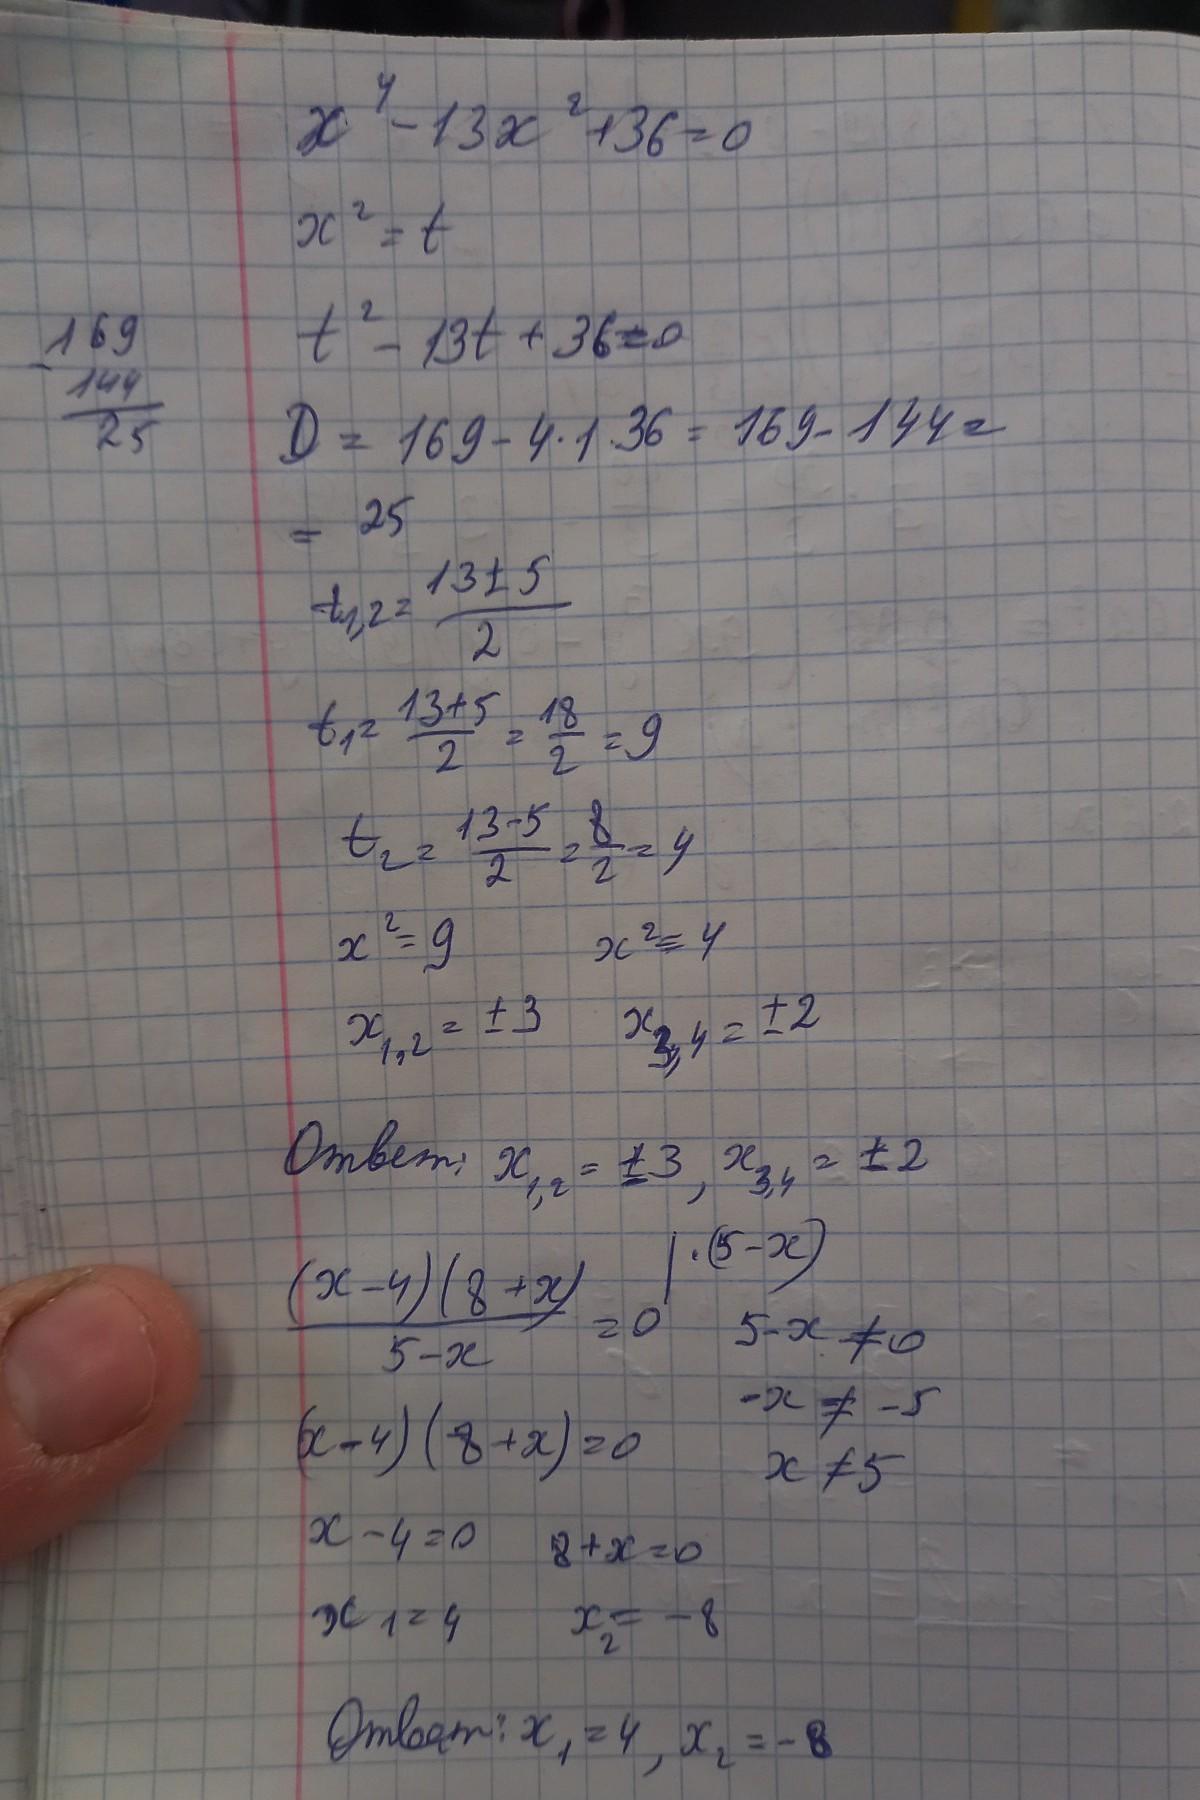 x⁴ - 13x² + 36 = 0
x² = t
t² - 13t + 36 = 0
169
- 144
25
D = 169 - 4·1·36 = 169 - 144 =
= 25
t₁,₂ = (13 ± 5)/2
t₁ = (13+5)/2 = 18/2 = 9
t₂ = (13-5)/2 = 8/2 = 4
x² = 9 x² = 4
x₁,₂ = ±3 x₃,₄ = ±2
Ответ: x₁,₂ = ±3, x₃,₄ = ±2
(x-4)(8+x)/(5-x) = 0 | ·(5-x)
5-x ≠ 0
-x ≠ -5
x ≠ 5
(x-4)(8+x) = 0
x-4=0 8+x=0
x₁=4 x₂=-8
Ответ: x₁=4, x₂=-8